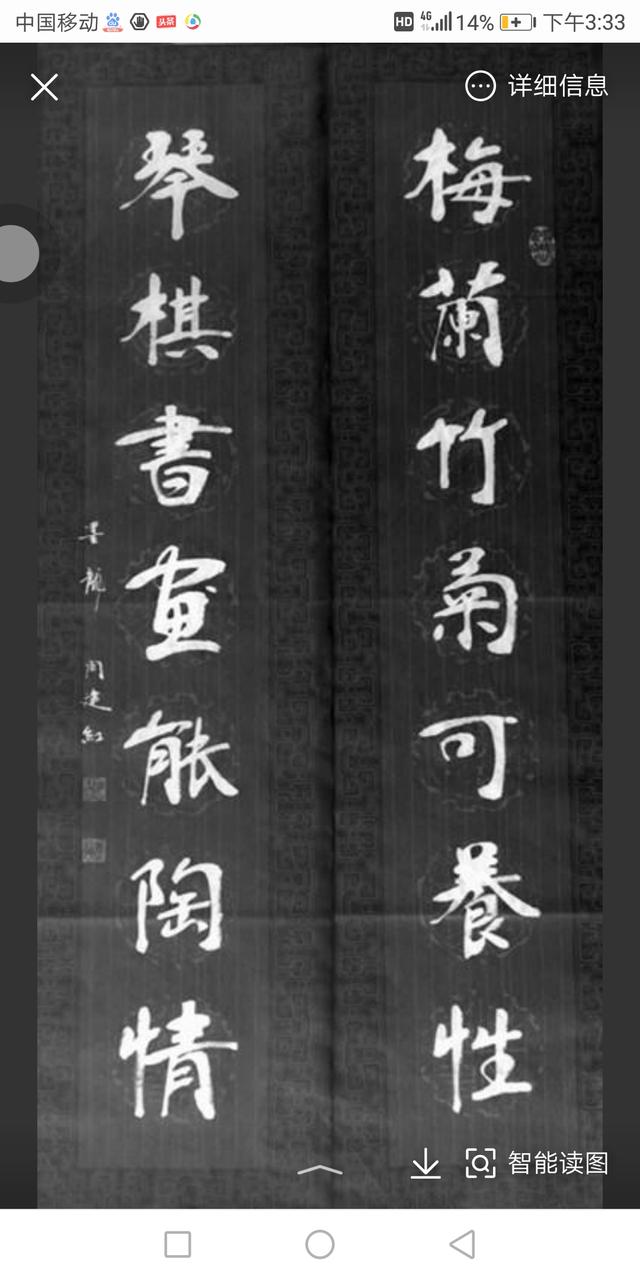 中国移动 头条 HD 4G 14% 下午3:33
详细信息
梅蘭竹菊可養性
琴棋書畫能陶情
墨龍 周建紅
智能读图